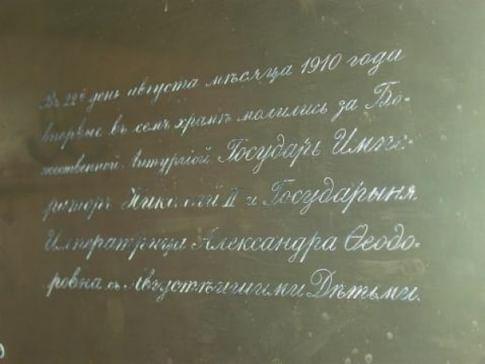 Въ 22й день августа мѣсяца 1910 года
впервые въ семъ храмѣ молились за Бо-
жественной Литургіей Государь Импе-
раторъ Николай II и Государыня
Императрица Александра Ѳеодо-
ровна съ Августѣйшими Дѣтьми.